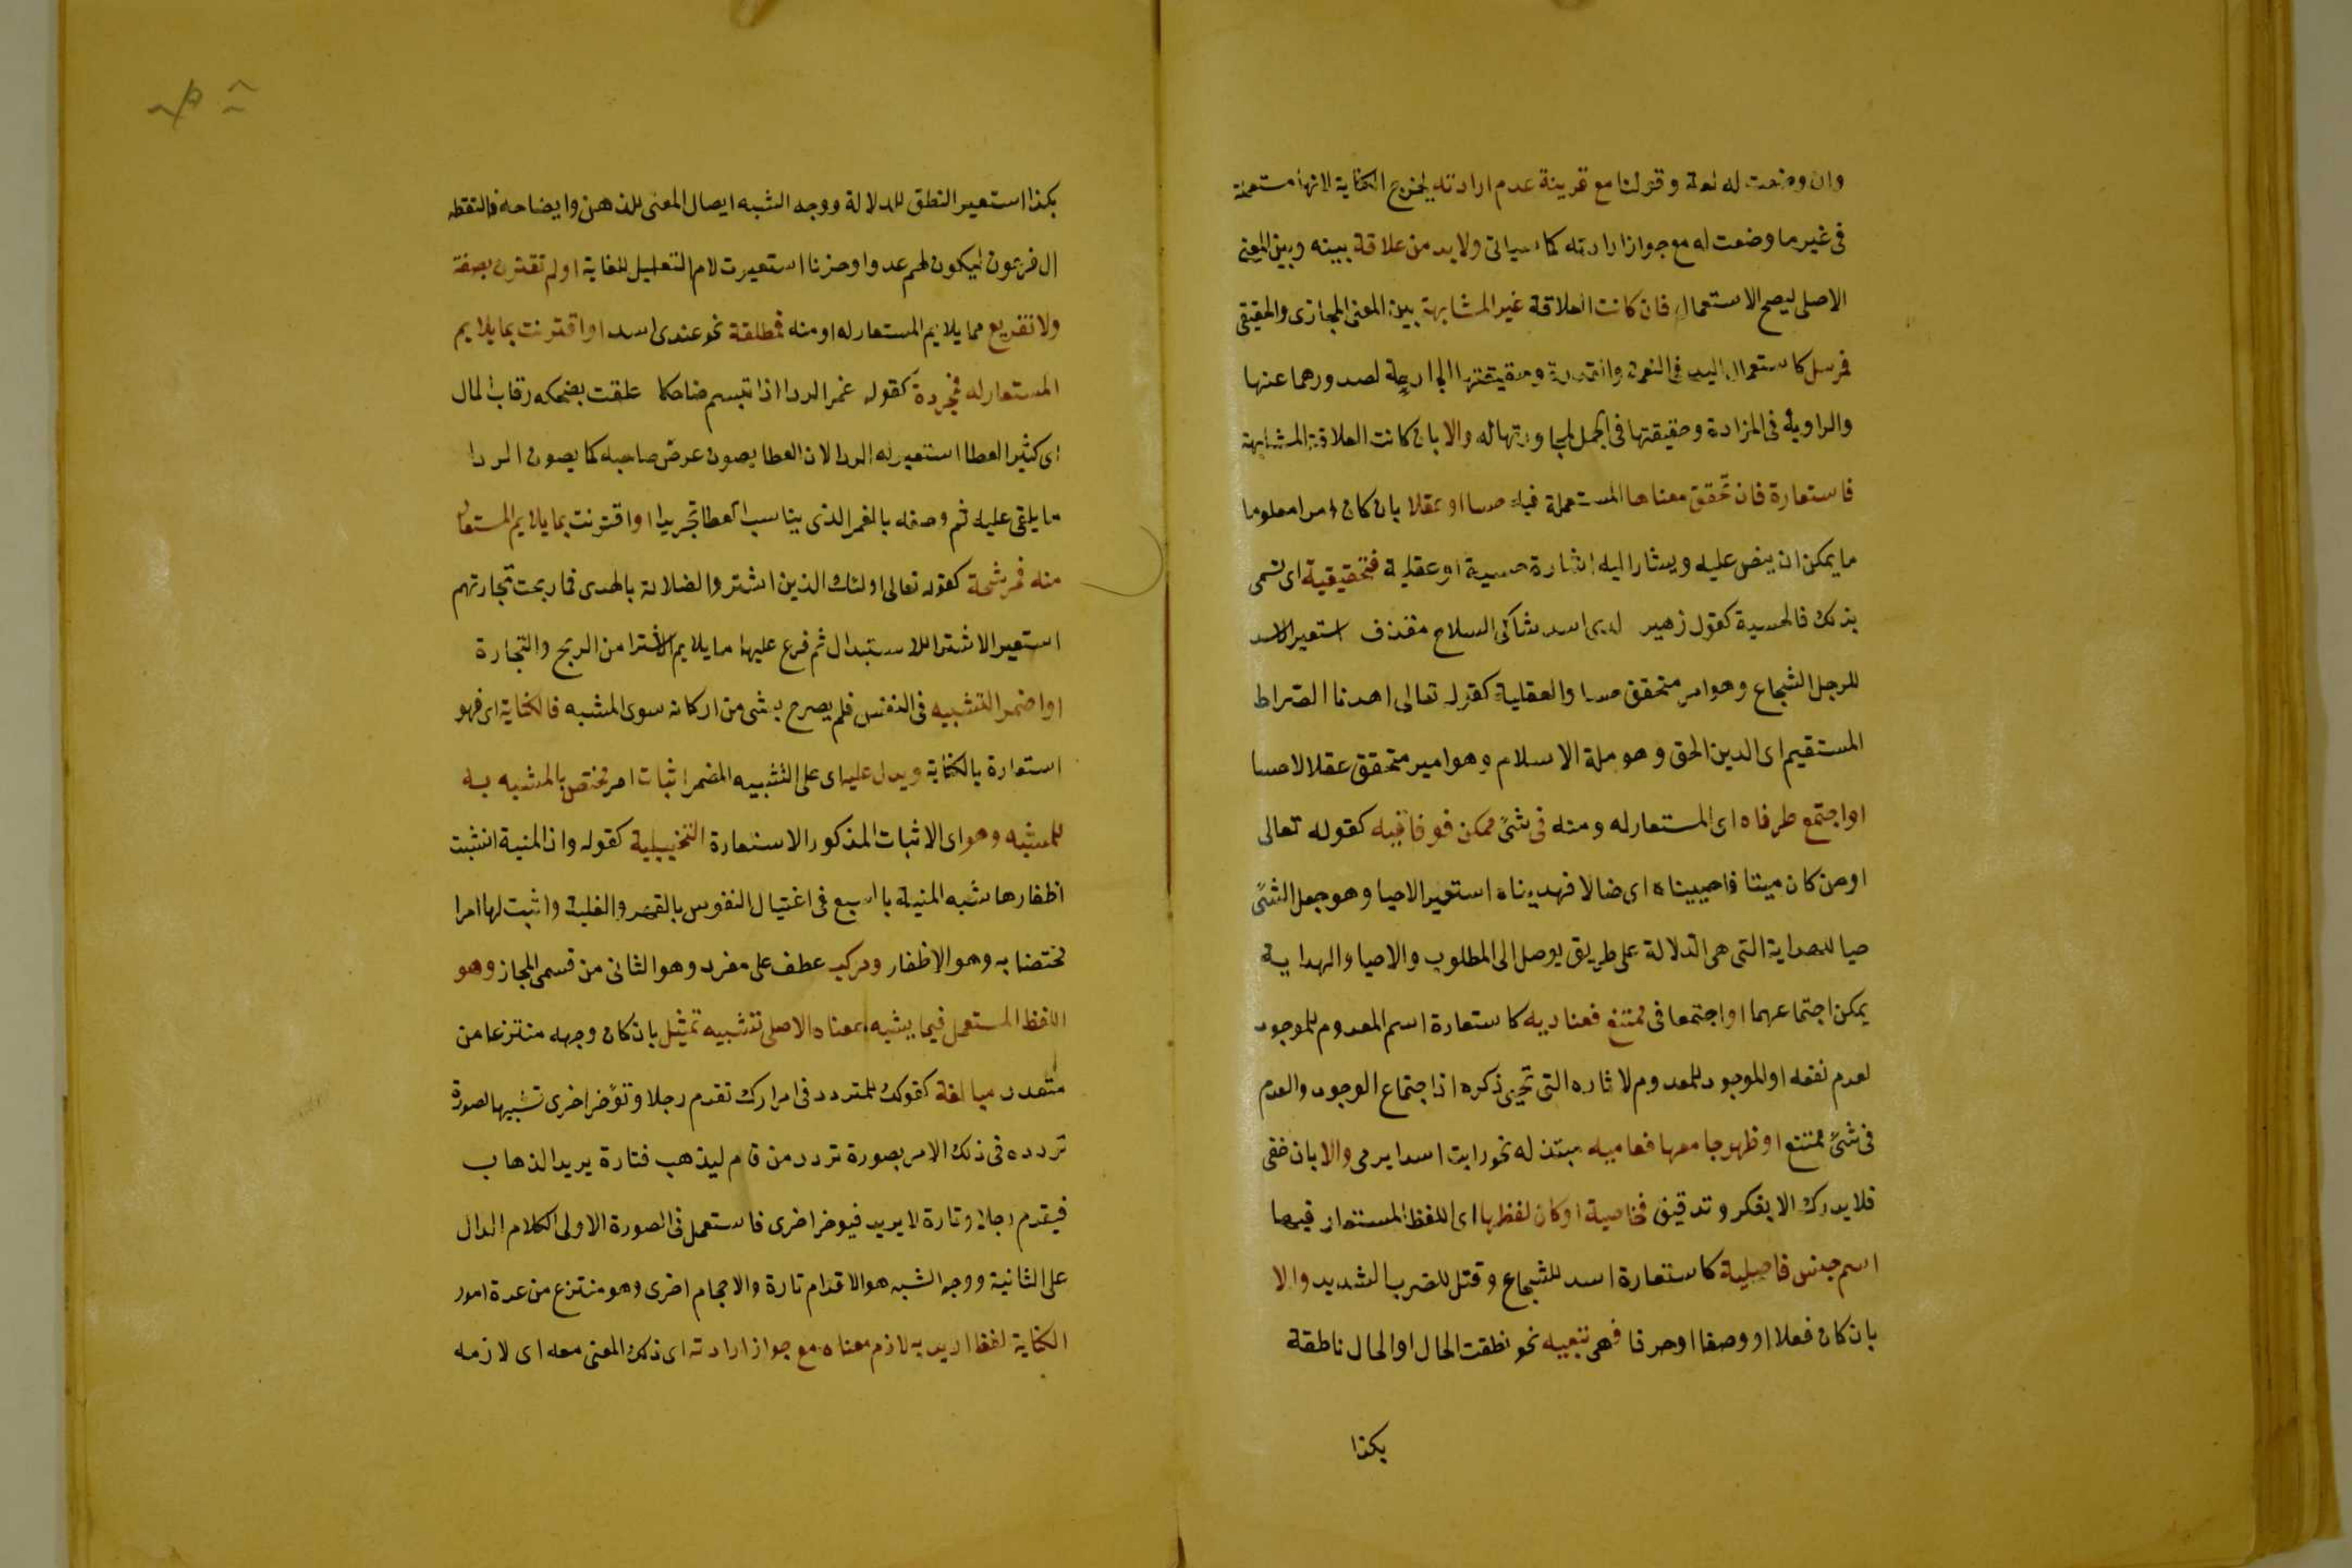 وان وضعت له لغة وقولنا مع قرينة عدم ارادته ليخرج الكناية لانها مستعملة
فى غير ما وضعت له مع جواز ارادته كما سياتى ولا بد من علاقة بينه وبين المعنى
الاصلى ليصح الاستعمال فان كانت العلاقة غير المشابهة بين المعنى المجازى والحقيقى
فمرسل كاستعمال اليد فى النعمة والقدرة وحقيقتها الجارحة لصدورهما عنها
والراوية فى المزادة وحقيقتها فى الجمل لمجاورتها له والا بان كانت العلاقة المشابهة
فاستعارة فان تحقق معناها المستعملة فيه حسا او عقلا بان كان امرا معلوما
ما يمكن ان ينص عليه ويشار اليه اشارة حسية او عقلية فتحقيقية اى تسمى
بذلك فالحسية كقول زهير لدى اسد شاكى السلاح مقذف استعير الاسد
للرجل الشجاع وهو امر متحقق حسا والعقلية كقوله تعالى اهدنا الصراط
المستقيم اى الدين الحق وهو ملة الاسلام وهو امر متحقق عقلا لا حسا
او اجتمع طرفاه اى المستعار له ومنه فى شئ ممكن فوفاقيه كقوله تعالى
اومن كان ميتا فاحييناه اى ضالا فهديناه استعير الاحيا وهو جعل الشئ
حيا للهداية التى هى الدلالة على طريق يوصل الى المطلوب والاحياء والهداية
يمكن اجتماعهما او اجتمعا فى ممتنع فعناديه كاستعارة اسم المعدوم للموجود
لعدم نفعه او الموجود للمعدوم لاثاره التى تحيى ذكره اذ اجتماع الوجود والعدم
فى شئ ممتنع او ظهر جامعها فعاميه مبتذله نحو رايت اسدا يرمى والا بان خفى
فلا يدرك الا بفكر وتدقيق فخاصية او كان لفظها اى اللفظ المستعار فيها
اسم جنس فاصلية كاستعارة اسد للشجاع وقتل للضرب الشديد والا
بان كان فعلا او وصفا او حرفا فهى تبعيه نحو نطقت الحال او الحال ناطقة
بكذا
بكذا استعير النطق للدلالة ووجه الشبه ايصال المعنى للذهن وايضاحه فالتقطه
ال فرعون ليكون لهم عدوا وحزنا استعيرت لام التعليل للغاية او لم تقترن بصفة
ولا تفريع مما يلايم المستعار له او منه فمطلقة نحو عندى اسد او اقترنت بما يلايم
المستعار له فمجردة كقوله غمر الردا اذا تبسم ضاحكا علقت بضحكه رقاب المال
اى كثير العطا استعير له الردا لان العطا يصون عرض صاحبه كما يصون الردا
ما يلقى عليه ثم وصفه بالغمر الذى يناسب العطا تجريدا او اقترنت بما يلايم المستعار
منه فمرشحة كقوله تعالى اولئك الذين اشتروا الضلالة بالهدى فما ربحت تجارتهم
استعير الاشترا للاستبدال ثم فرع عليها ما يلايم الاشترا من الربح والتجارة
او اضمر التشبيه فى النفس فلم يصرح بشى من اركانه سوى المشبه فالكناية اى فهو
استعارة بالكناية ويدل عليه اى على التشبيه المضمر اثبات امر مختص بالمشبه به
للمشبه وهو اى الاثبات المذكور الاستعارة التخييلية كقوله واذا المنية انشبت
اظفارها شبه المنية بالسبع فى اغتيال النفوس بالقهر والغلبة واثبت لها امرا
مختصا به وهو الاظفار ومركب عطف على مفرد وهو الثانى من قسمى المجاز وهو
اللفظ المستعمل فيما يشبه بمعناه الاصلى تشبيه تمثيل بان كان وجهه منتزعا من
متعدد مبالغة كقولك للمتردد فى امر اراك تقدم رجلا وتؤخر اخرى تشبيها لصورة
تردده فى ذلك الامر بصورة تردد من قام ليذهب فتارة يريد الذهاب
فيقدم رجلا وتارة لا يريد فيوخر اخرى فاستعمل فى الصورة الاولى الكلام الدال
على الثانية ووجه الشبه هو الاقدام تارة والاحجام اخرى وهو منتزع من عدة امور
الكناية لفظ اريد به لازم معناه مع جواز ارادته اى ذلك المعنى معه اى لازمه